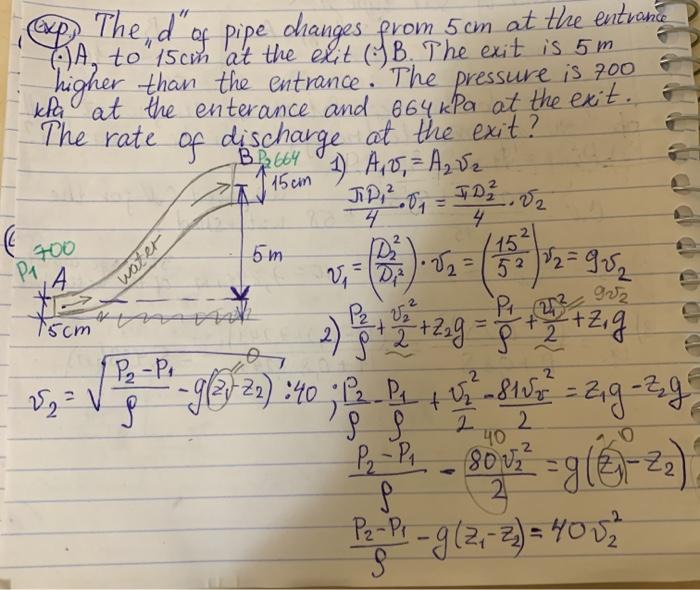 exp, The "d" of pipe changes from 5cm at the entrance
(·)A, to 15cm at the exit (·)B. The exit is 5m
higher than the entrance. The pressure is 700
kPa at the enterance and 664kPa at the exit.
The rate of discharge at the exit?
B P₂664
15cm
5m
700
P₁
A
water
5cm
1) A₁υ₁=A₂υ₂
πD₁²/4 · υ₁ = πD₂²/4 · υ₂
υ₁=(D₂²/D₁²)·υ₂=(15²/5²)υ₂=9υ₂
9υ₂
2) P₂/ρ + υ₂²/2 + z₂g = P₁/ρ + υ₁²/2 + z₁g
υ₂ = √(P₂-P₁/ρ - g(z₁-z₂) :40 ;
0
P₂/ρ - P₁/ρ + υ₂²/2 - 81υ₂²/2 = z₁g - z₂g
40 0
P₂-P₁/ρ - 80υ₂²/2 = g(z₁-z₂)
P₂-P₁/ρ - g(z₁-z₂) = 40υ₂²